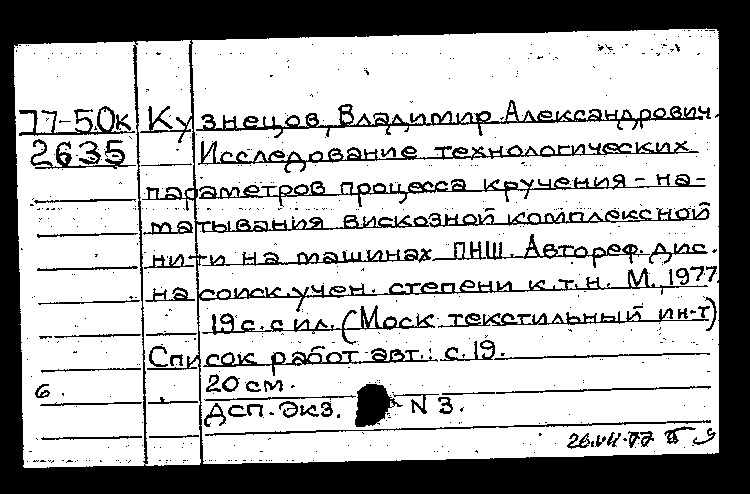 77-5.0к Кузнецов, Владимир Александрович.
2635 Исследование технологических
параметров процесса кручения - на-
матывания вискозной комплексной
нити на машинах ПНШ. Автореф. дис.
на соиск. учен. степени к.т.н. М., 1977.
19 с. с ил. (Моск. текстильный ин-т)
Список работ авт.: с. 19.
6. 20 см.
ДСП. Экз. N 3.
26.VII.77